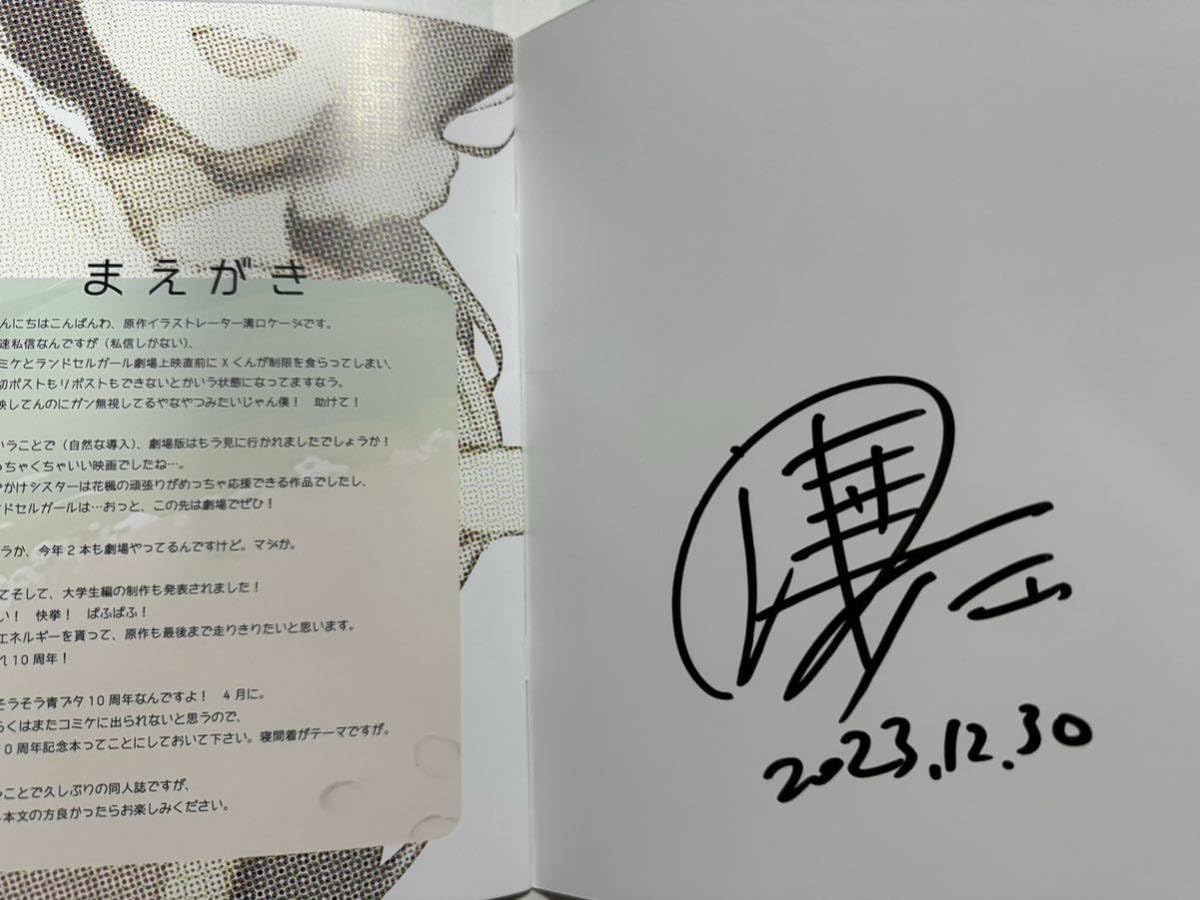 まえがき
んにちはこんばんわ、原作イラストレーター溝口ケージです。
速私信なんですが（私信しかない）、
ミケとランドセルガール劇場上映直前にXくんが制限を食らってしまい、
切ポストもリポストもできないとかいう状態になってますなう。
映してんのにガン無視してるやなやつみたいじゃん僕！　助けて！
いうことで（自然な導入）、劇場版はもう見に行かれましたでしょうか！
っちゃくちゃいい映画でしたね…。
でかけシスターは花楓の頑張りがめっちゃ応援できる作品でしたし、
ンドセルガールは…おっと、この先は劇場でぜひ！
うか、今年2本も劇場やってるんですけど。マジか。
てそして、大学生編の制作も発表されました！
い！　快挙！　ぱふぱふ！
エネルギーを貰って、原作も最後まで走りきりたいと思います。
れ10周年！
そろそろ青ブタ10周年なんですよ！　4月に。
らくはまたコミケに出られないと思うので、
10周年記念本ってことにしておいて下さい。寝間着がテーマですが。
ことで久しぶりの同人誌ですが、
本文の方良かったらお楽しみください。
2023.12.30